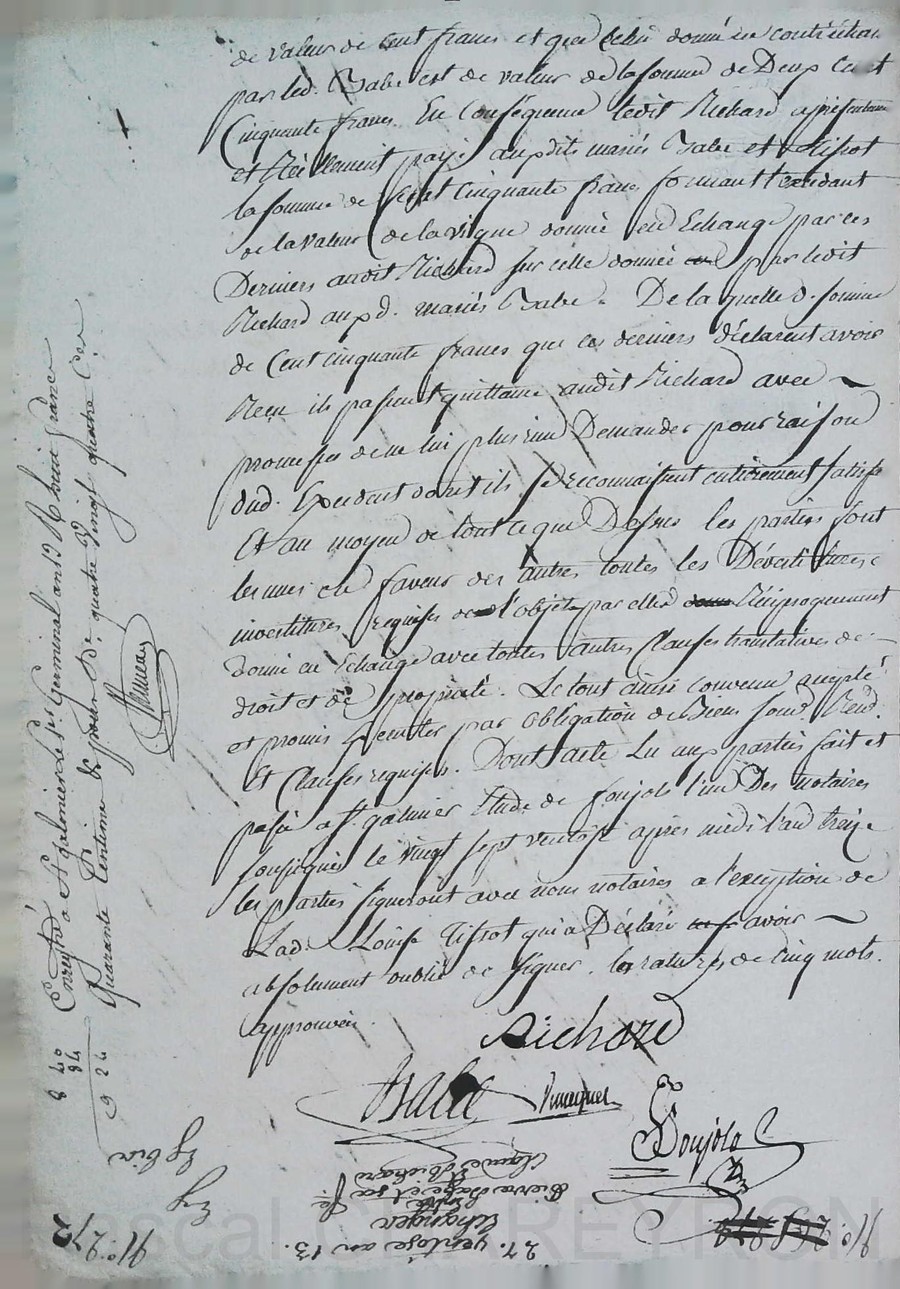 de valeur de Cent francs et que celui donné en contréchan
par led. Babe est de valeur de la somme de Deux Cent
Cinquante francs. En Conséquence ledit Richard a présentement
et Réellement payé auxdits mariés Babe et Tissot
la somme de Cent Cinquante francs formant l'excédant
de la valeur de la vigne donnée en Echange par ces
Derniers audit Richard sur celle donnée par ledit
Richard auxd. mariés Babe. De laquelle d. somme
de Cent cinquante francs que ces derniers déclarent avoir
Reçu ils passent quittance audit Richard avec
promesses de ne lui plus rien Demander pour raison
dud. Excédent dont ils se reconnaissent entièrement satisfs
Et au moyen de tout ce que Dessus les parties sont
les unes en faveur des autres toutes les Dévestitures
investitures requises de l'objet par elles Réciproquement
donné en Echange avec toutes autres Clauses translatives de
droit et de propriété. Le tout ainsi convenu accepté
et promis Exécuter par obligation de Biens soud. Rend.
Et Clauses requises. Dont acte Lu aux parties fait et
passé a St. galmier Etude de Soujols l'un Des notaires
soussignés le vingt sept ventose après midi l'an treize
les parties signeront avec nous notaires a l'exception de
Lad. Louise Tissot qui a Déclaré avoir
absolument oublié de signer. les ratures de cinq mots
approuvées.
Richard
Babe
Soujols
Enregtré a St galmier le 1er Germinal an 13 Reçu
quarante Centimes quatre vingt quatre Ces
8 40
84
9 24
27. ventose an 13.
Echange
Entre
Pierre Babe et sa fe.
Claude Richard
Exp
N°. 272
N°.